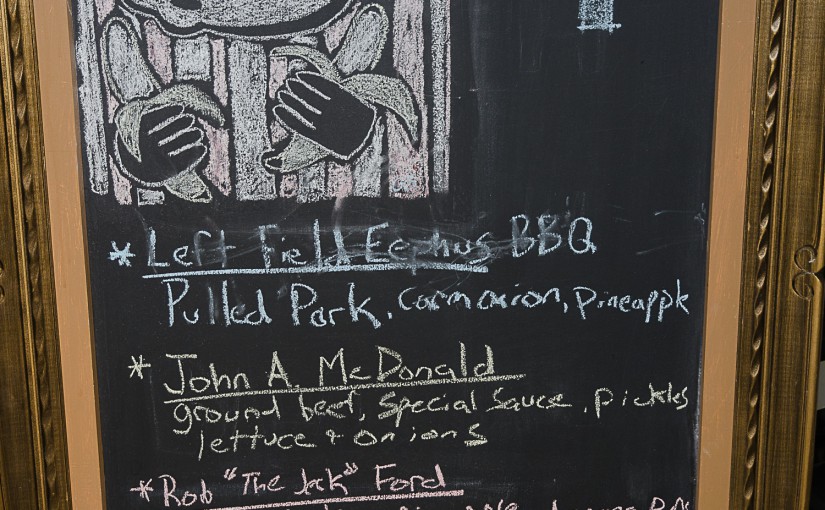 * Left Field Eephus BBQ
Pulled Pork, Carm onion, pineapple
* John A. McDonald
ground beef, special sauce, pickles
lettuce + onions
* Rob "The Jack" Ford